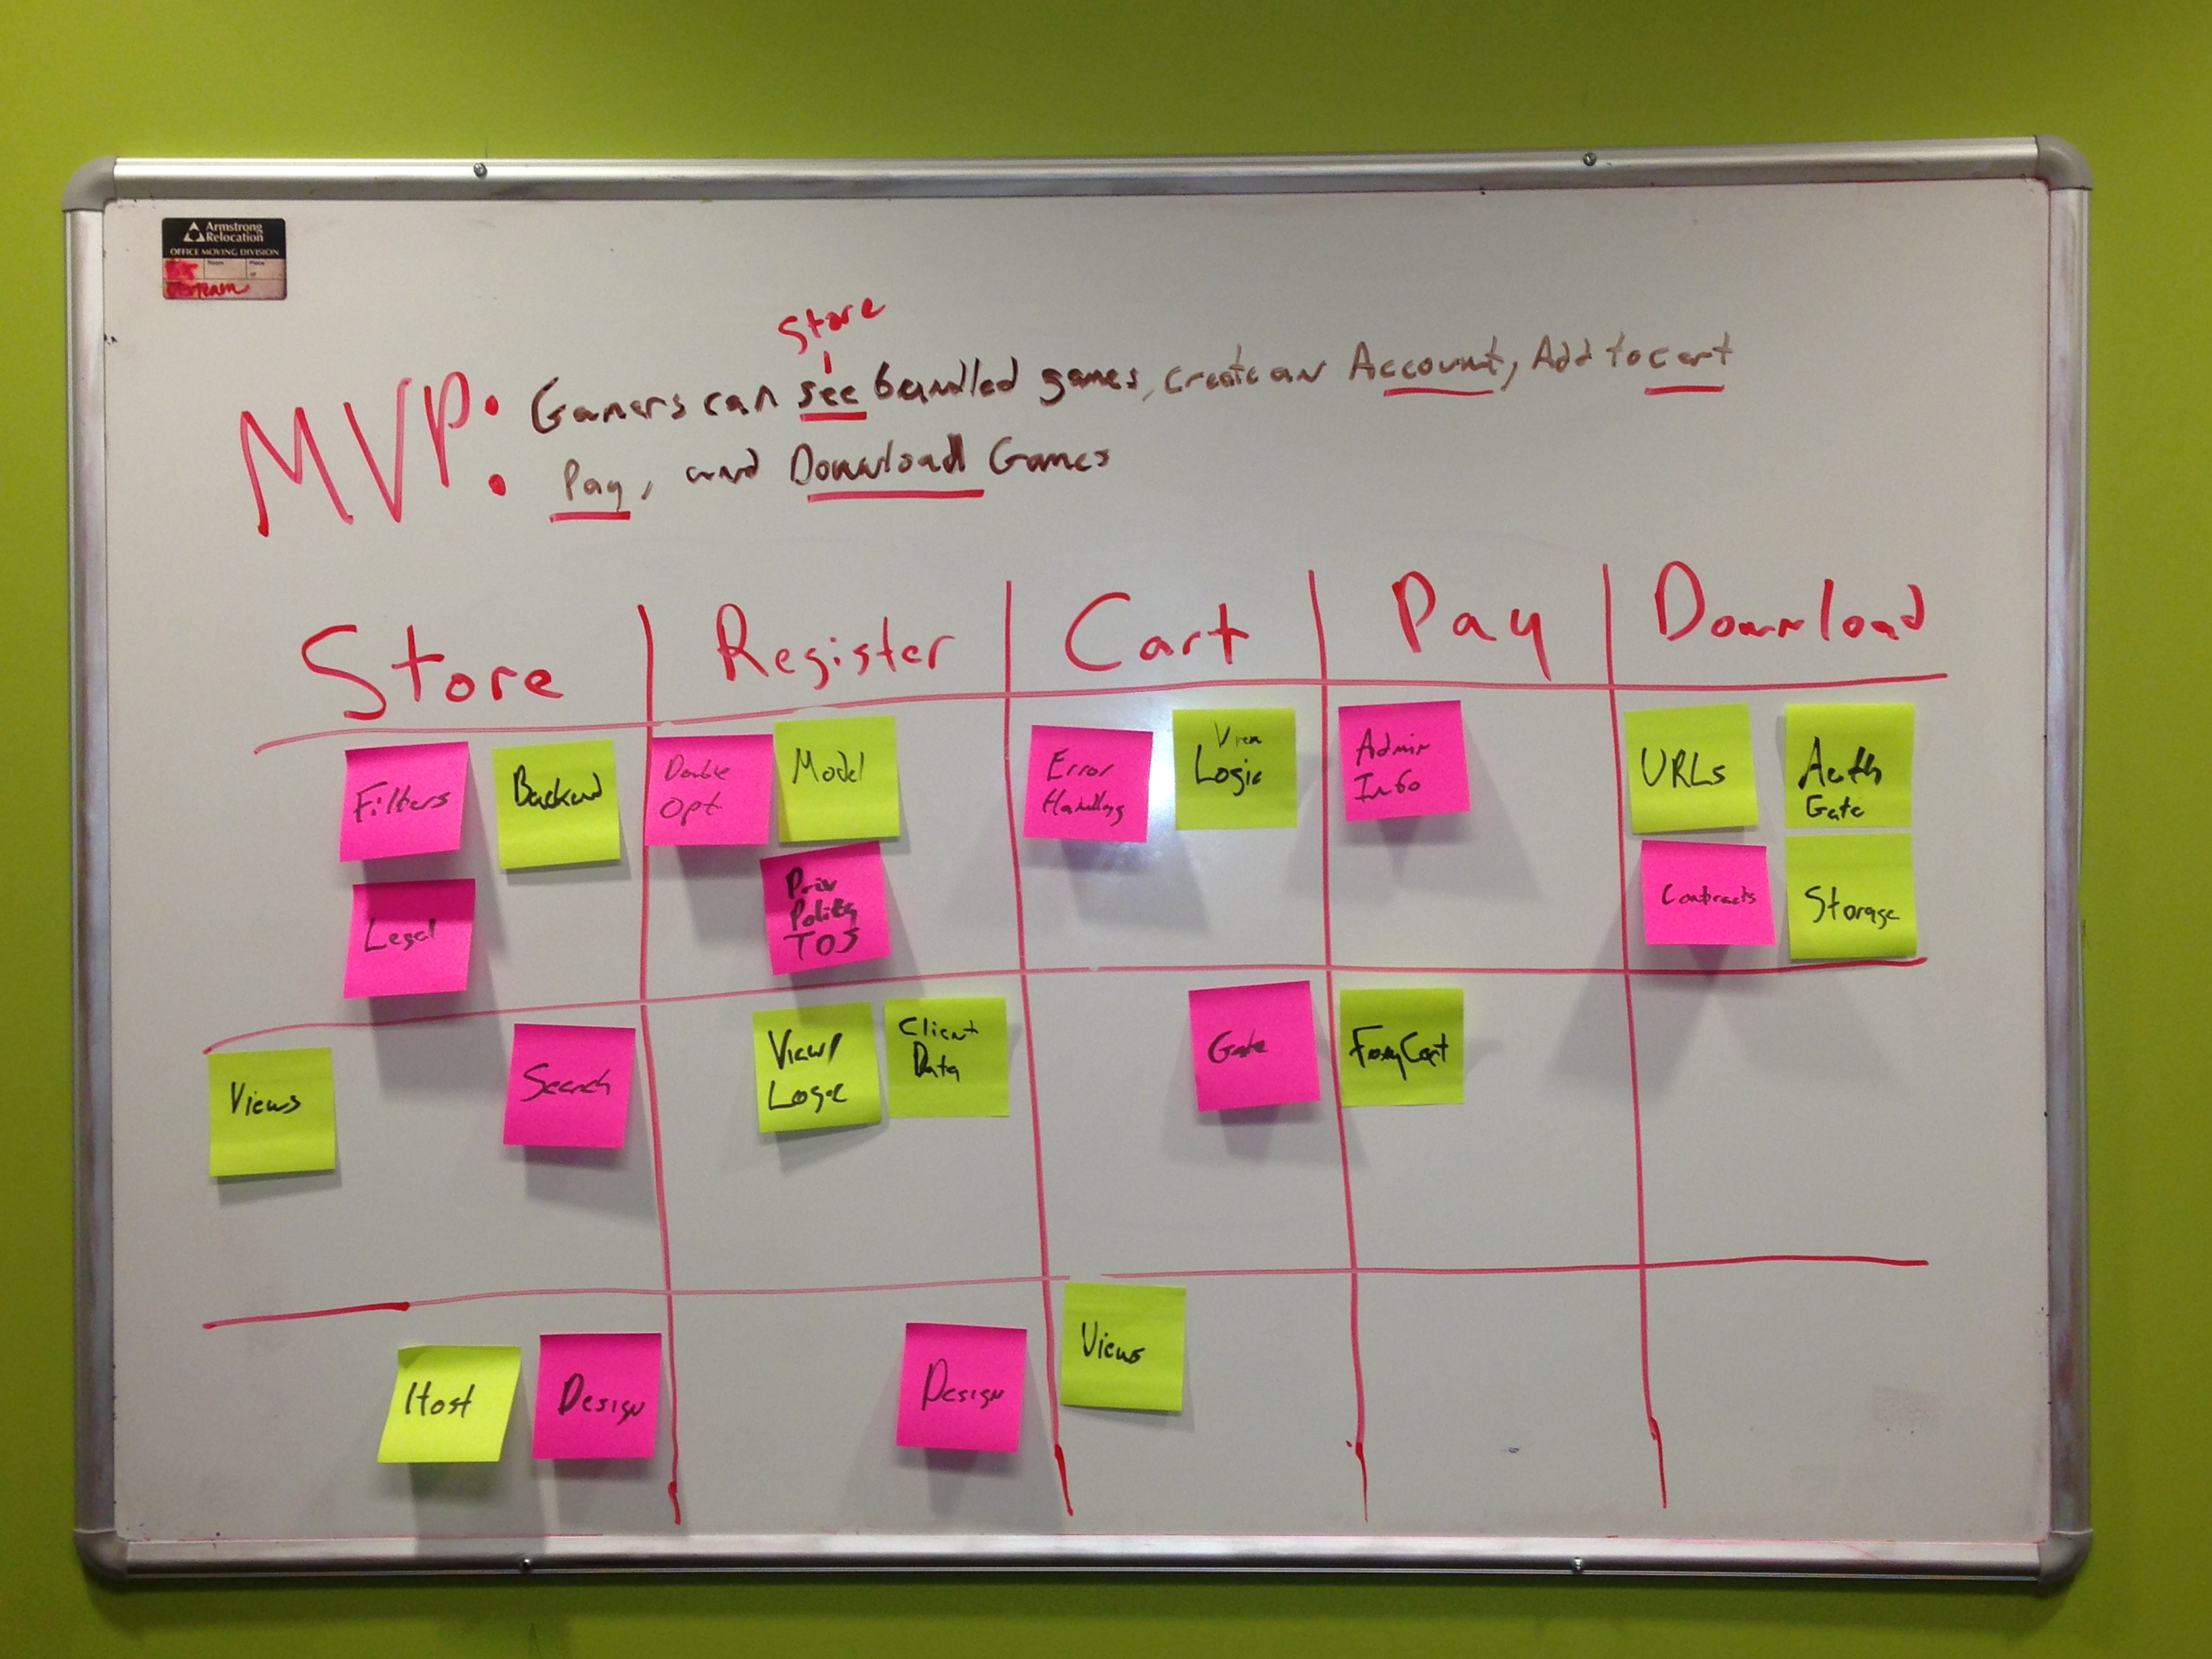 Armstrong
Relocation
OFFICE MOVING DIVISION
Room
Place
of
Store
MVP: Gamers can see bundled games, create an Account, Add to cart
Pay, and Download Games
Store
Register
Cart
Pay
Download
Filters
Backend
Legal
Double
Opt
Model
Priv
Policy
TOS
Error
Handling
View
Logic
Admin
Info
URLs
Auth
Gate
Contracts
Storage
Views
Search
View/
Logic
Client
Data
Gate
FoxyCart
Host
Design
Design
Views